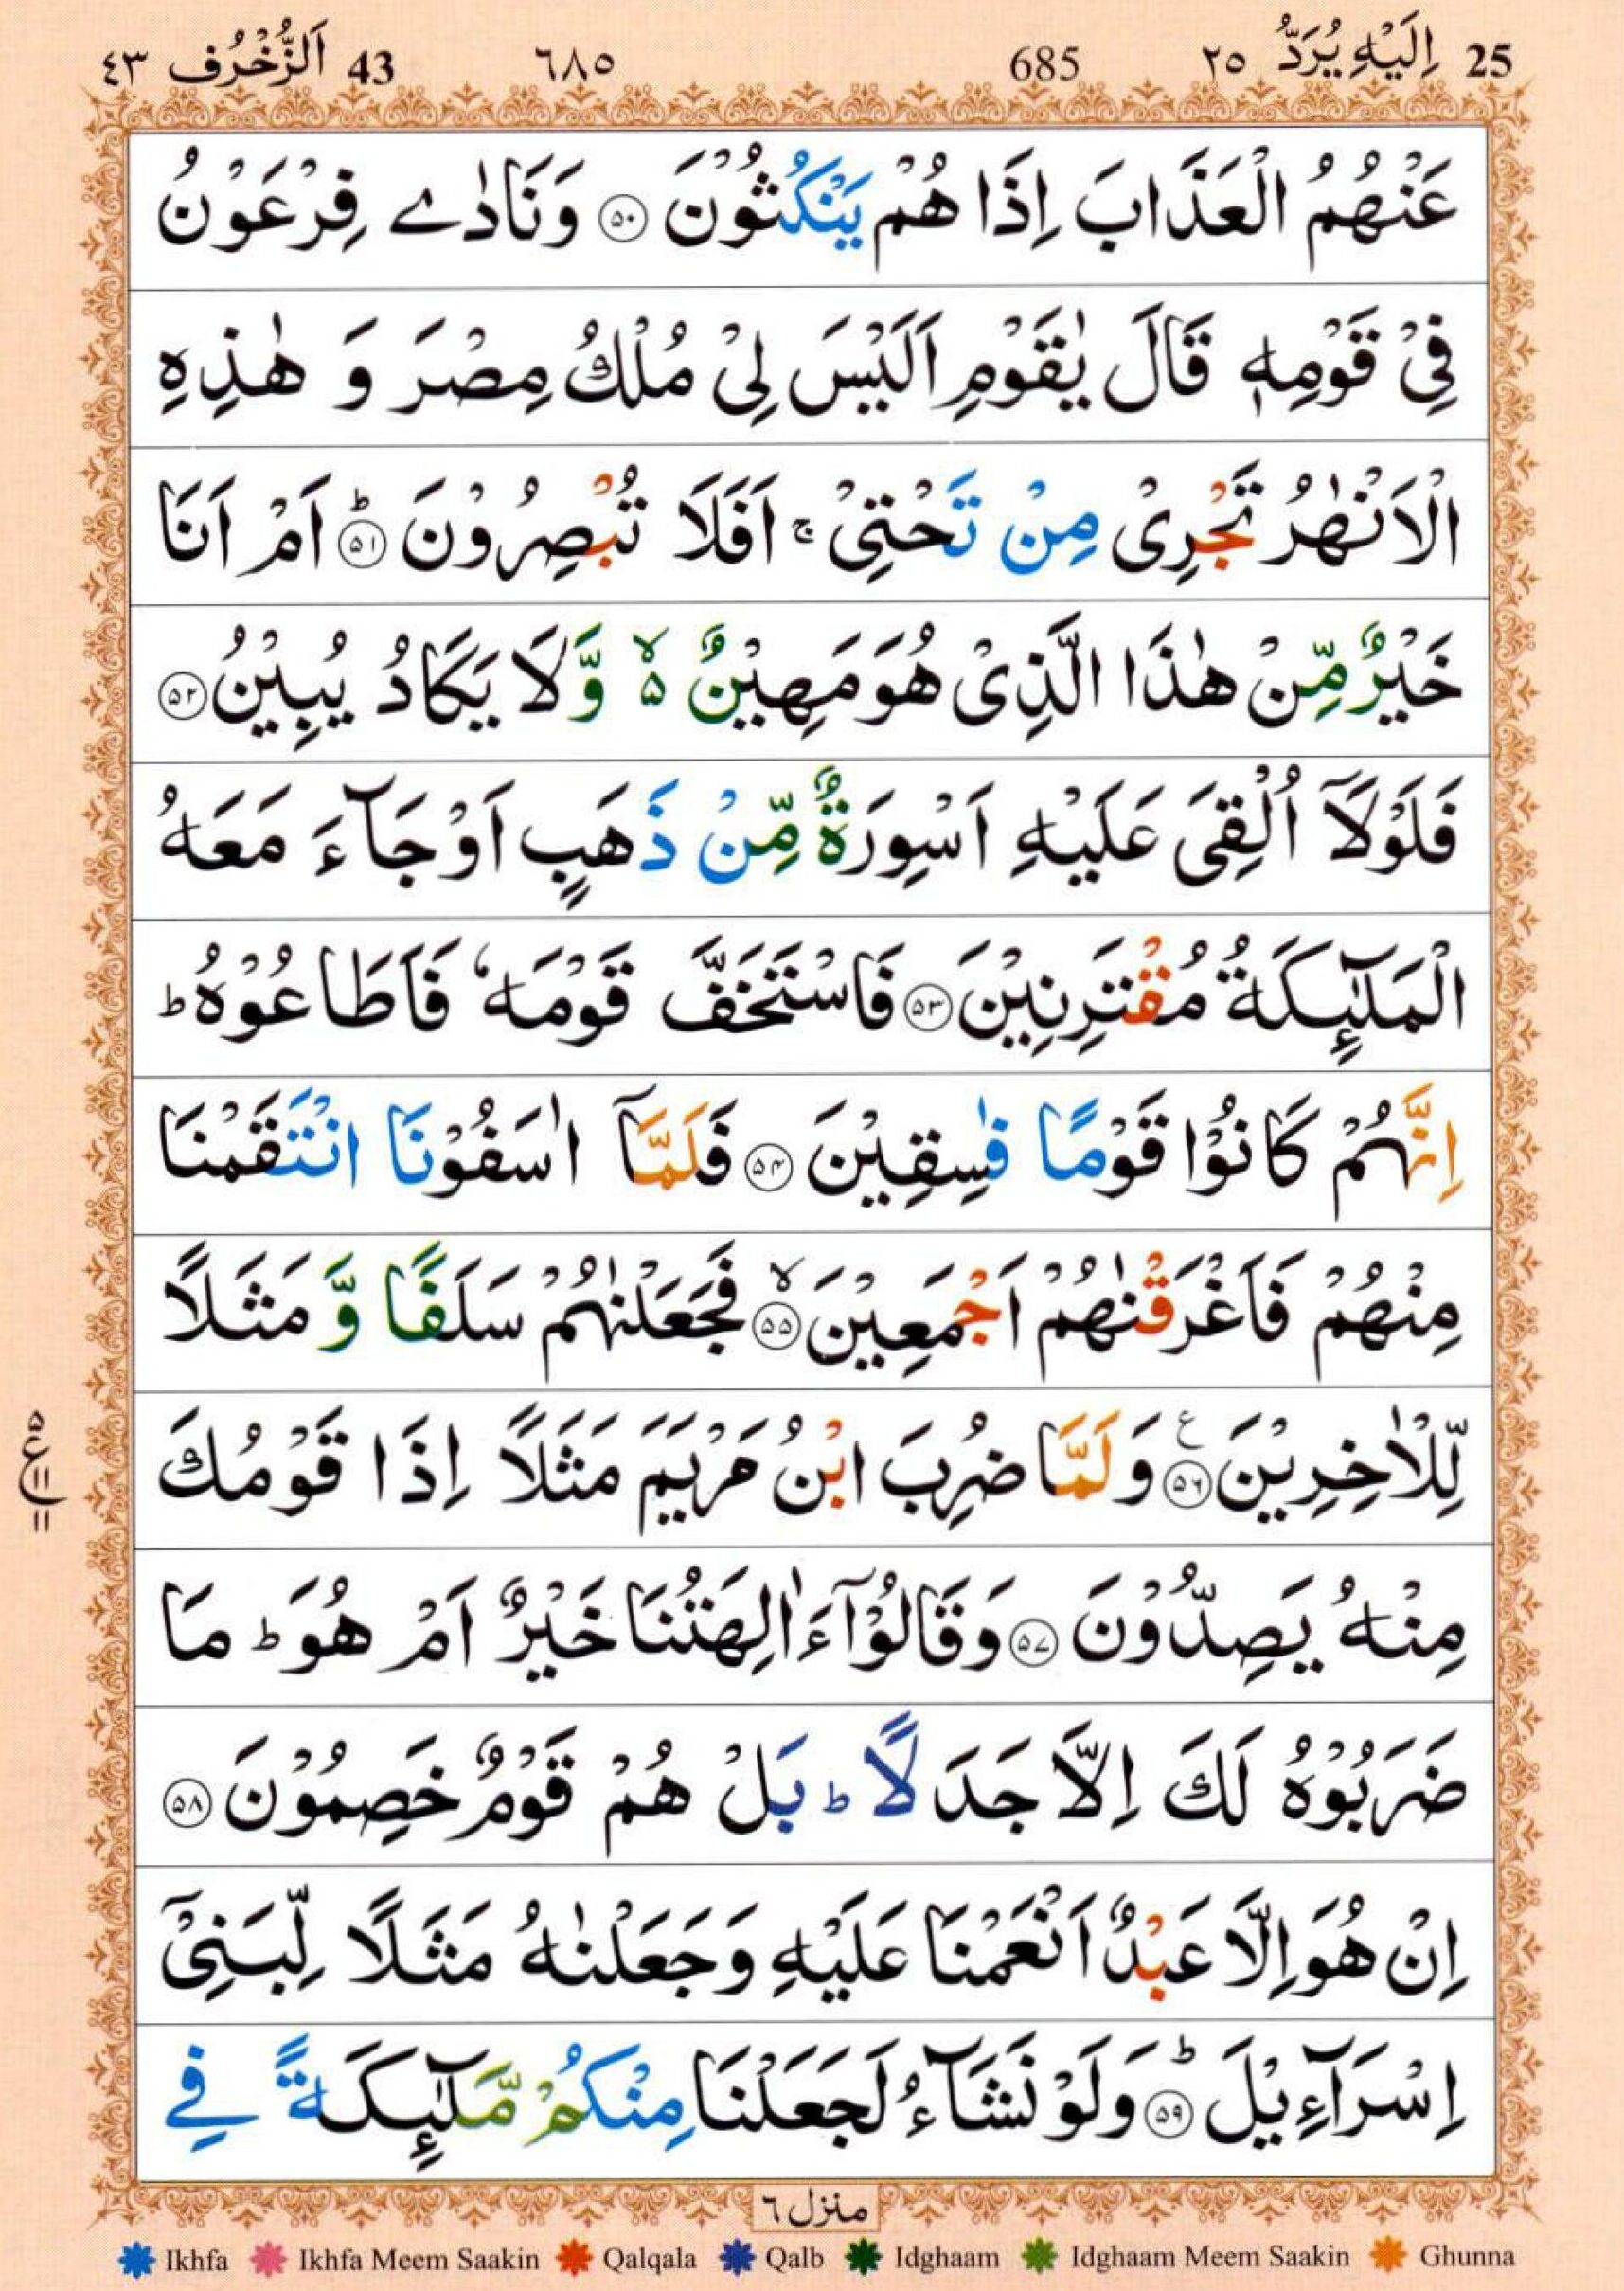 25 اِلَيْهِ يُرَدُّ ٢٥ 685 ٦٨٥ 43 اَلزُّخْرُف ٤٣
عَنْهُمُ الْعَذَابَ اِذَا هُمْ يَنْكُثُوْنَ ۝۵۰ وَنَادٰے فِرْعَوْنُ
فِیْ قَوْمِهٖ قَالَ يٰقَوْمِ اَلَيْسَ لِیْ مُلْكُ مِصْرَ وَ هٰذِهِ
الْاَنْهٰرُ تَجْرِیْ مِنْ تَحْتِیْ ۚ اَفَلَا تُبْصِرُوْنَ ؕ۝۵۱ اَمْ اَنَا
خَيْرٌ مِّنْ هٰذَا الَّذِیْ هُوَ مَهِيْنٌ ۙ۵ وَّلَا يَكَادُ يُبِيْنُ ۝۵۲
فَلَوْلَاۤ اُلْقِیَ عَلَيْهِ اَسْوِرَةٌ مِّنْ ذَهَبٍ اَوْ جَآءَ مَعَهُ
الْمَلٰٓئِكَةُ مُقْتَرِنِيْنَ ۝۵۳ فَاسْتَخَفَّ قَوْمَهٗ فَاَطَاعُوْهُ ؕ
اِنَّهُمْ كَانُوْا قَوْمًا فٰسِقِيْنَ ۝۵۴ فَلَمَّاۤ اٰسَفُوْنَا انْتَقَمْنَا
مِنْهُمْ فَاَغْرَقْنٰهُمْ اَجْمَعِيْنَ ۙ۝۵۵ فَجَعَلْنٰهُمْ سَلَفًا وَّ مَثَلًا
لِّلْاٰخِرِيْنَ ۝۵۶ ع وَلَمَّا ضُرِبَ ابْنُ مَرْيَمَ مَثَلًا اِذَا قَوْمُكَ
۵ ع ۱۱ ۱۱
مِنْهُ يَصِدُّوْنَ ۝۵۷ وَقَالُوْۤا ءَاٰلِهَتُنَا خَيْرٌ اَمْ هُوَ ؕ مَا
ضَرَبُوْهُ لَكَ اِلَّا جَدَلًا ؕ بَلْ هُمْ قَوْمٌ خَصِمُوْنَ ۝۵۸
اِنْ هُوَ اِلَّا عَبْدٌ اَنْعَمْنَا عَلَيْهِ وَجَعَلْنٰهُ مَثَلًا لِّبَنِیْۤ
اِسْرَآءِيْلَ ؕ۝۵۹ وَلَوْ نَشَآءُ لَجَعَلْنَا مِنْكُمْ مَّلٰٓئِكَةً فِے
منزل ٦
Ikhfa Ikhfa Meem Saakin Qalqala Qalb Idghaam Idghaam Meem Saakin Ghunna